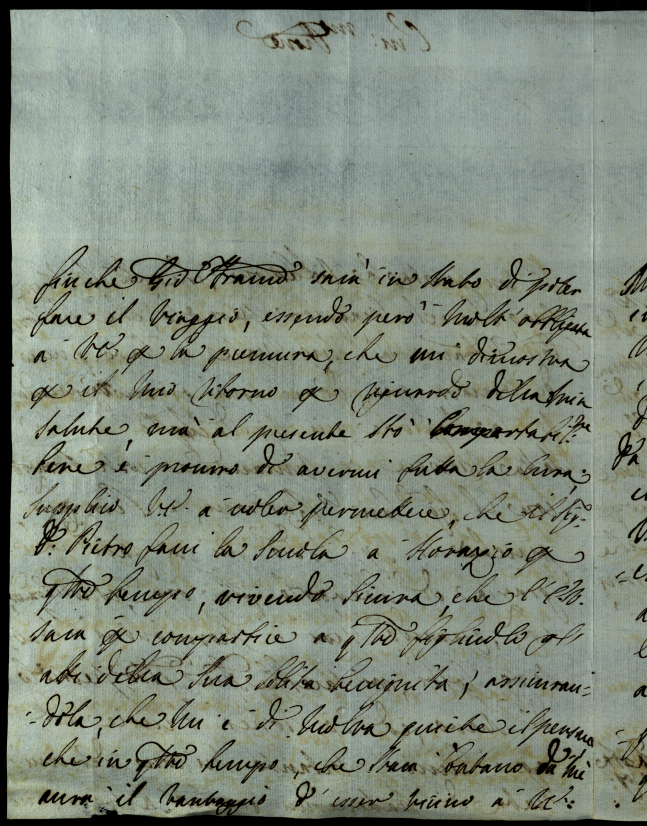 finche Gio Franco sarà in stato di poter
fare il viaggio, essendo però molto obbligata
à VE p la premura, che mi dimostra
p il mio ritorno p riguardo della mia
salute, mà al presente stò
bene e procuro di avermi tutta la cura;
supplico VE. à voler permettere, che il Sig:
D. Pietro facci la scuola a Horazio p
qsto tempo, vivendo sicura, che l'
sarà p compartire a qsto figliuolo gl'
atti della sua solita benignità; assicuran=
=dola, che mi è di molta quiete il pensare
che in qsto tempo, che starà lontano da mè
avrà il vantaggio d'esser vicino à VE: